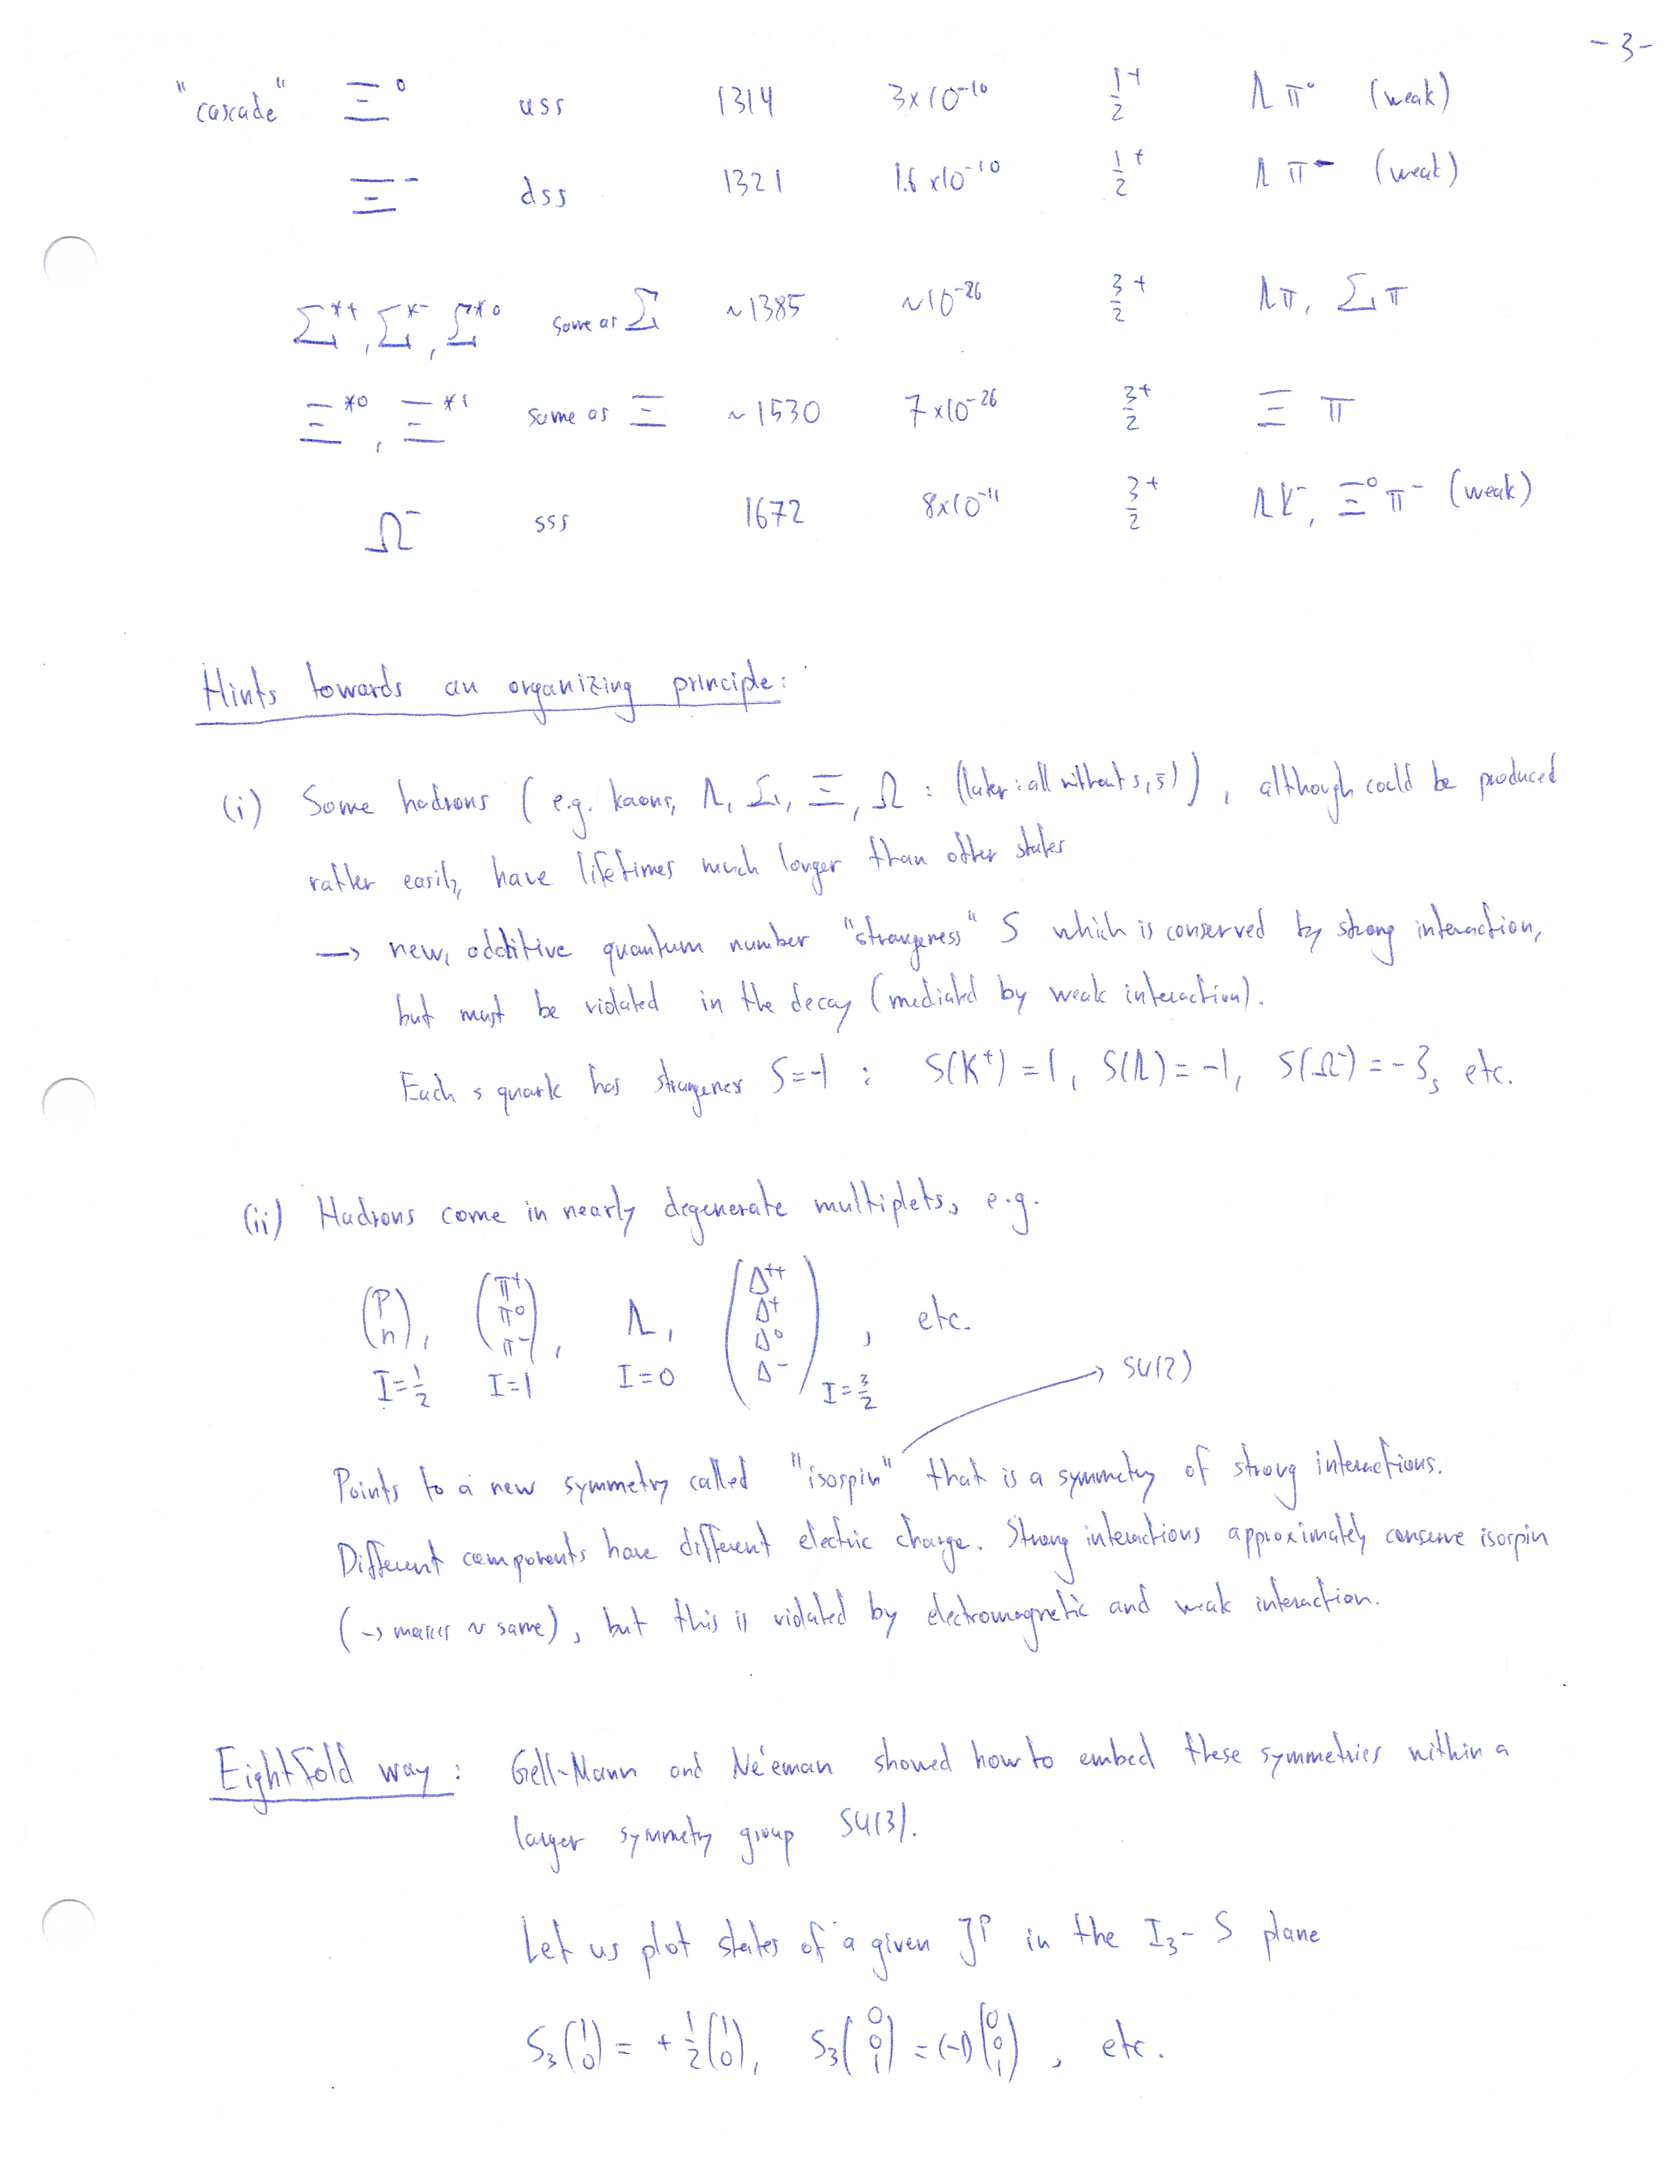 -3-
"cascade" Ξ⁰ uss 1314 3×10⁻¹⁰ 1/2⁺ Λπ⁰ (weak)
Ξ⁻ dss 1321 1.6×10⁻¹⁰ 1/2⁺ Λπ⁻ (weak)
Σ*⁺, Σ*⁻, Σ*⁰ same as Σ ~1385 ~10⁻²⁶ 3/2⁺ Λπ, Σπ
Ξ*⁰, Ξ*⁻ same as Ξ ~1530 7×10⁻²⁶ 3/2⁺ Ξπ
Ω⁻ sss 1672 8×10⁻¹¹ 3/2⁺ ΛK⁻, Ξ⁰π⁻ (weak)
Hints towards an organizing principle:
(i) Some hadrons (e.g. kaons, Λ, Σ, Ξ, Ω : (later: all without s, s̄)), although could be produced
rather easily, have lifetimes much longer than other states
→ new, additive quantum number "strangeness" S which is conserved by strong interaction,
but must be violated in the decay (mediated by weak interaction).
Each s quark has strangeness S=-1 : S(K⁺) = 1, S(Λ) = -1, S(Ω⁻) = -3, etc.
(ii) Hadrons come in nearly degenerate multiplets, e.g.
(p n), (π⁺ π⁰ π⁻), Λ, (Δ⁺⁺ Δ⁺ Δ⁰ Δ⁻), etc.
I=1/2 I=1 I=0 I=3/2
→ SU(2)
Points to a new symmetry called "isospin" that is a symmetry of strong interactions.
Different components have different electric charge. Strong interactions approximately conserve isospin
(→ masses ~ same), but this is violated by electromagnetic and weak interaction.
Eightfold way: Gell-Mann and Né'eman showed how to embed these symmetries within a
larger symmetry group SU(3).
Let us plot states of a given Jᴾ in the I₃-S plane
S₃(1 0) = +1/2(1 0), S₃(0 0 1) = (-1)(0 0 1), etc.